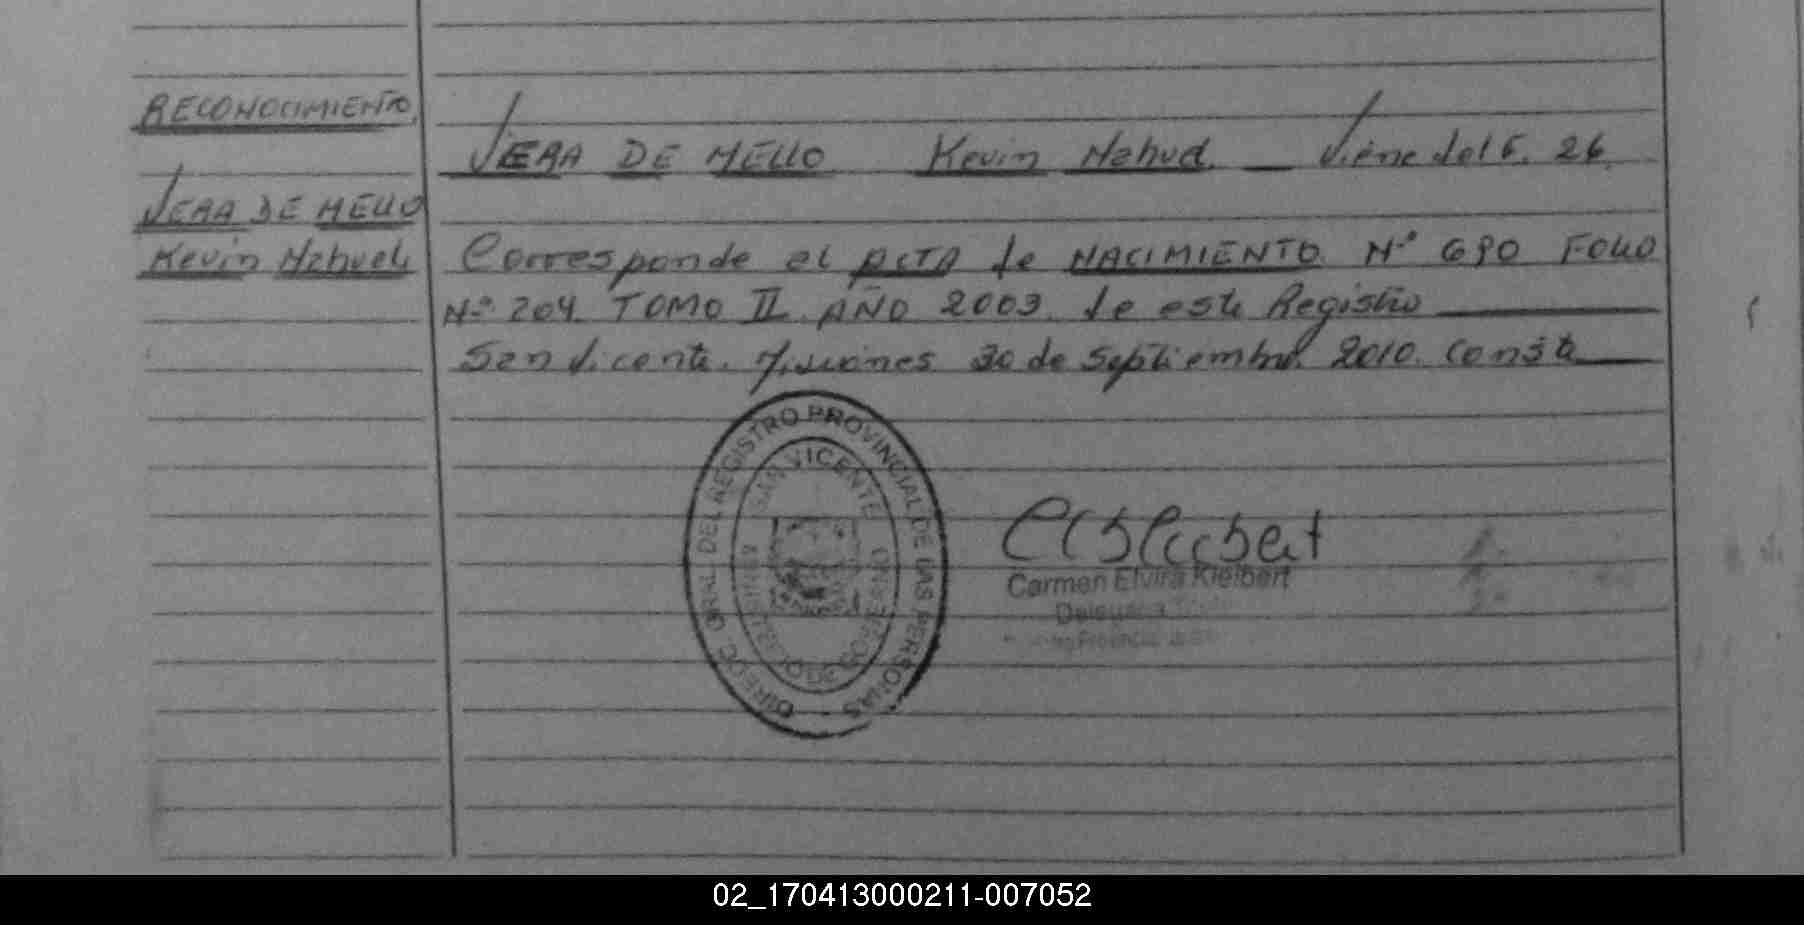 RECONOCIMIENTO
VERA DE MELLO
Kevin Nahuel
VERA DE MELLO Kevin Nahuel. — Viene del F. 26
Corresponde al ACTA de NACIMIENTO Nº 690 FOLIO
Nº 204 TOMO II AÑO 2003. de este Registro
San Vicente. Misiones 30 de Septiembre 2010. Conste
DIREC. GRAL. DEL REGISTRO PROVINCIAL DE LAS PERSONAS
SAN VICENTE
GOBIERNO
Carmen Elvira Kielbert
Delegada
02_170413000211-007052